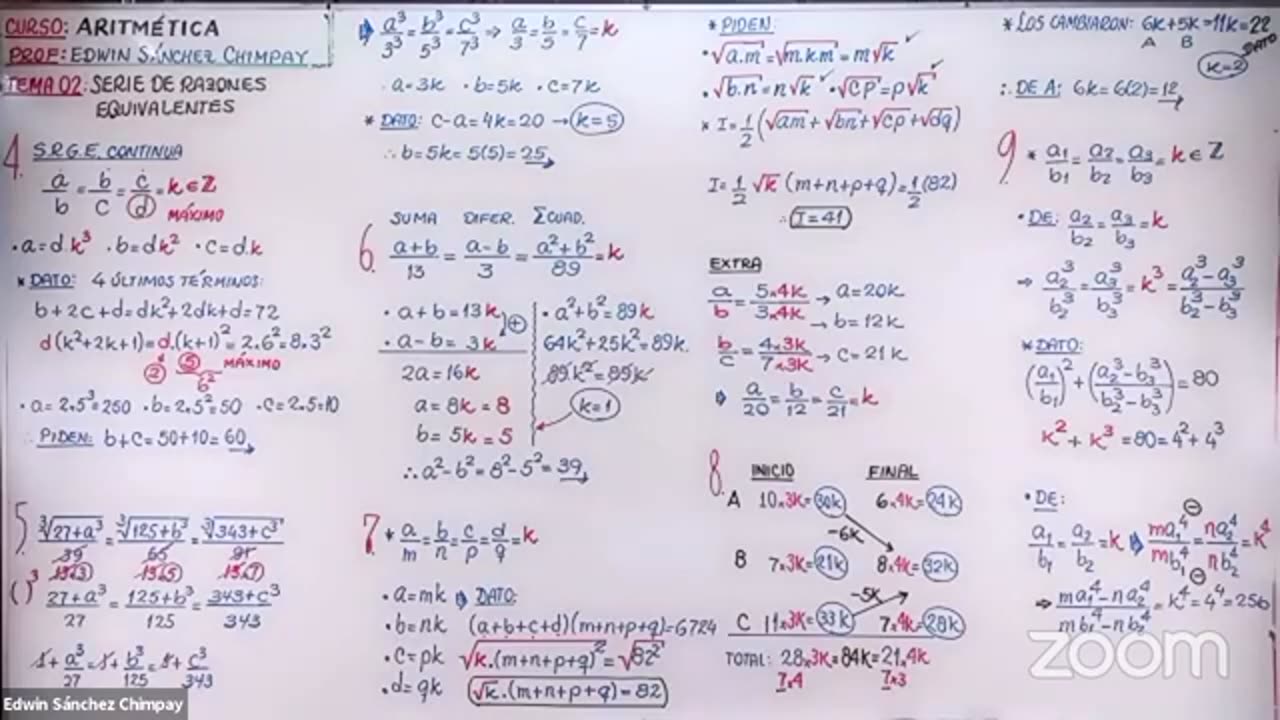 CURSO: ARITMÉTICA
PROF: EDWIN SÁNCHEZ CHIMPAY
TEMA 02: SERIE DE RAZONES
EQUIVALENTES
4. S.R.G.E. CONTINUA
a/b = b/c = c/d = k ∈ Z
MÁXIMO
• a = d.k³ • b = dk² • c = d.k
* DATO: 4 ÚLTIMOS TÉRMINOS:
b+2c+d = dk²+2dk+d = 72
d(k²+2k+1) = d.(k+1)² = 2.6² = 8.3²
② ⑤ MÁXIMO
6²
• a = 2.5³ = 250 • b = 2.5² = 50 • c = 2.5 = 10
∴ PIDEN: b+c = 50+10 = 60
5. ∛(27+a³)/39 = ∛(125+b³)/65 = ∛(343+c³)/91
13(3) 13(5) 13(7)
( )³ (27+a³)/27 = (125+b³)/125 = (343+c³)/343
1+a³/27 = 1+b³/125 = 1+c³/343
a³/3³ = b³/5³ = c³/7³ ⇒ a/3 = b/5 = c/7 = k
• a = 3k • b = 5k • c = 7k
* DATO: c-a = 4k = 20 → k=5
∴ b = 5k = 5(5) = 25
SUMA DIFER. ΣCUAD.
6. (a+b)/13 = (a-b)/3 = (a²+b²)/89 = k
• a+b = 13k
• a-b = 3k ⊕
2a = 16k
a = 8k = 8
b = 5k = 5
• a²+b² = 89k
64k²+25k² = 89k
89k² = 89k
k=1
∴ a²-b² = 8²-5² = 39
7. * a/m = b/n = c/p = d/q = k
• a = mk DATO:
• b = nk (a+b+c+d)(m+n+p+q) = 6724
• c = pk √(k.(m+n+p+q)²) = √82²
• d = qk √k.(m+n+p+q) = 82
* PIDEN:
• √(a.m) = √(m.k.m) = m√k
• √(b.n) = n√k • √(cp) = p√k
* I = 1/2(√(am) + √(bn) + √(cp) + √(dq))
I = 1/2 √k (m+n+p+q) = 1/2(82)
∴ I=41
EXTRA
a/b = 5x4k/3x4k → a = 20k
→ b = 12k
b/c = 4x3k/7x3k → c = 21k
a/20 = b/12 = c/21 = k
8. INICIO FINAL
A 10x3k = 30k 6x4k = 24k
-6k
B 7x3k = 21k 8x4k = 32k
-5k
C 11x3k = 33k 7x4k = 28k
TOTAL: 28x3k = 84k = 21x4k
7x4 7x3
* LOS CAMBIARON: 6k+5k = 11k = 22
A B DATO
k=2
∴ DE A: 6k = 6(2) = 12
9. * a₁/b₁ = a₂/b₂ = a₃/b₃ = k ∈ Z
• DE: a₂/b₂ = a₃/b₃ = k
⇒ a₂³/b₂³ = a₃³/b₃³ = k³ = (a₂³-a₃³)/(b₂³-b₃³)
* DATO:
(a₁/b₁)² + ((a₂³-b₃³)/(b₂³-b₃³)) = 80
k² + k³ = 80 = 4²+4³
• DE:
a₁/b₁ = a₂/b₂ = k ma₁⁴/mb₁⁴ = na₂⁴/nb₂⁴ = k⁴
⇒ (ma₁⁴-na₂⁴)/(mb₁⁴-nb₂⁴) = k⁴ = 4⁴ = 256
zoom
Edwin Sánchez Chimpay